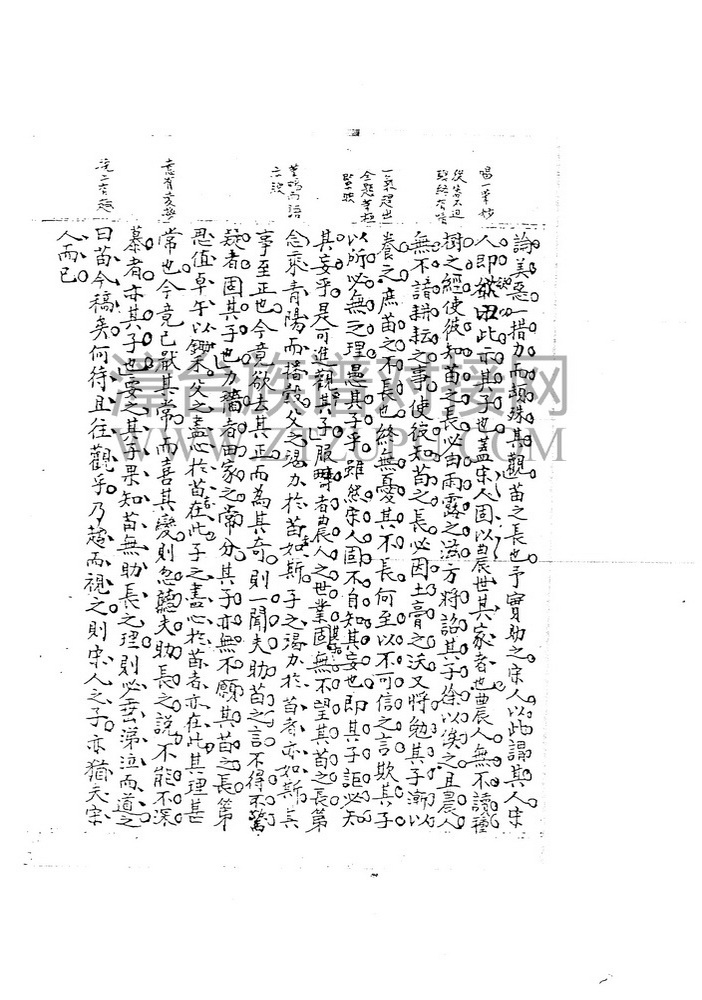 唱一筆妙
從容不迫
全題筆極
緊峽
意有交無
論美惡一措力而頓殊其觀苗之長也予實助之宋人以此謂其人宋
人即欲由此亦其子也蓋宋人固以農世其家者也農人無不讀種
樹之經使彼知苗之長必由雨露之滋方將詔其子徐以俟之且農人
無不諳耕耘之事使彼知苗之長必因土膏之沃又將勉其子漸以
養之庶苗之不長也終無憂其不長何至以不可信之言欺其子
以所必無之理愚其子乎雖然宋人固不自知其妄也即其子詎必知
其妄乎是可進觀其子服疇者農人之世業固無不望其苗之長第
念乘青陽而播穀父之竭力於苗如斯子之竭力於苗者亦如斯其
事至正也今竟欲去其正而為其奇則一聞夫助苗之言不得不驚
疑者固其子也力穡者田家之常分其子亦無不願其苗之長第
思值卓午以鋤禾父之盡心於苗在此子之盡心於苗者亦在此其理甚
常也今竟已厭其常而喜其變則忽聽夫助長之說不能不深
慕者亦其子也要之其子果知苗無助長之理則必垂涕泣而道之
曰苗今槁矣何待且往觀乎乃趨而視之則宋人之子亦猶夫宋
人而已
澶台族谱对接网
WWW.ZTZUPU.COM